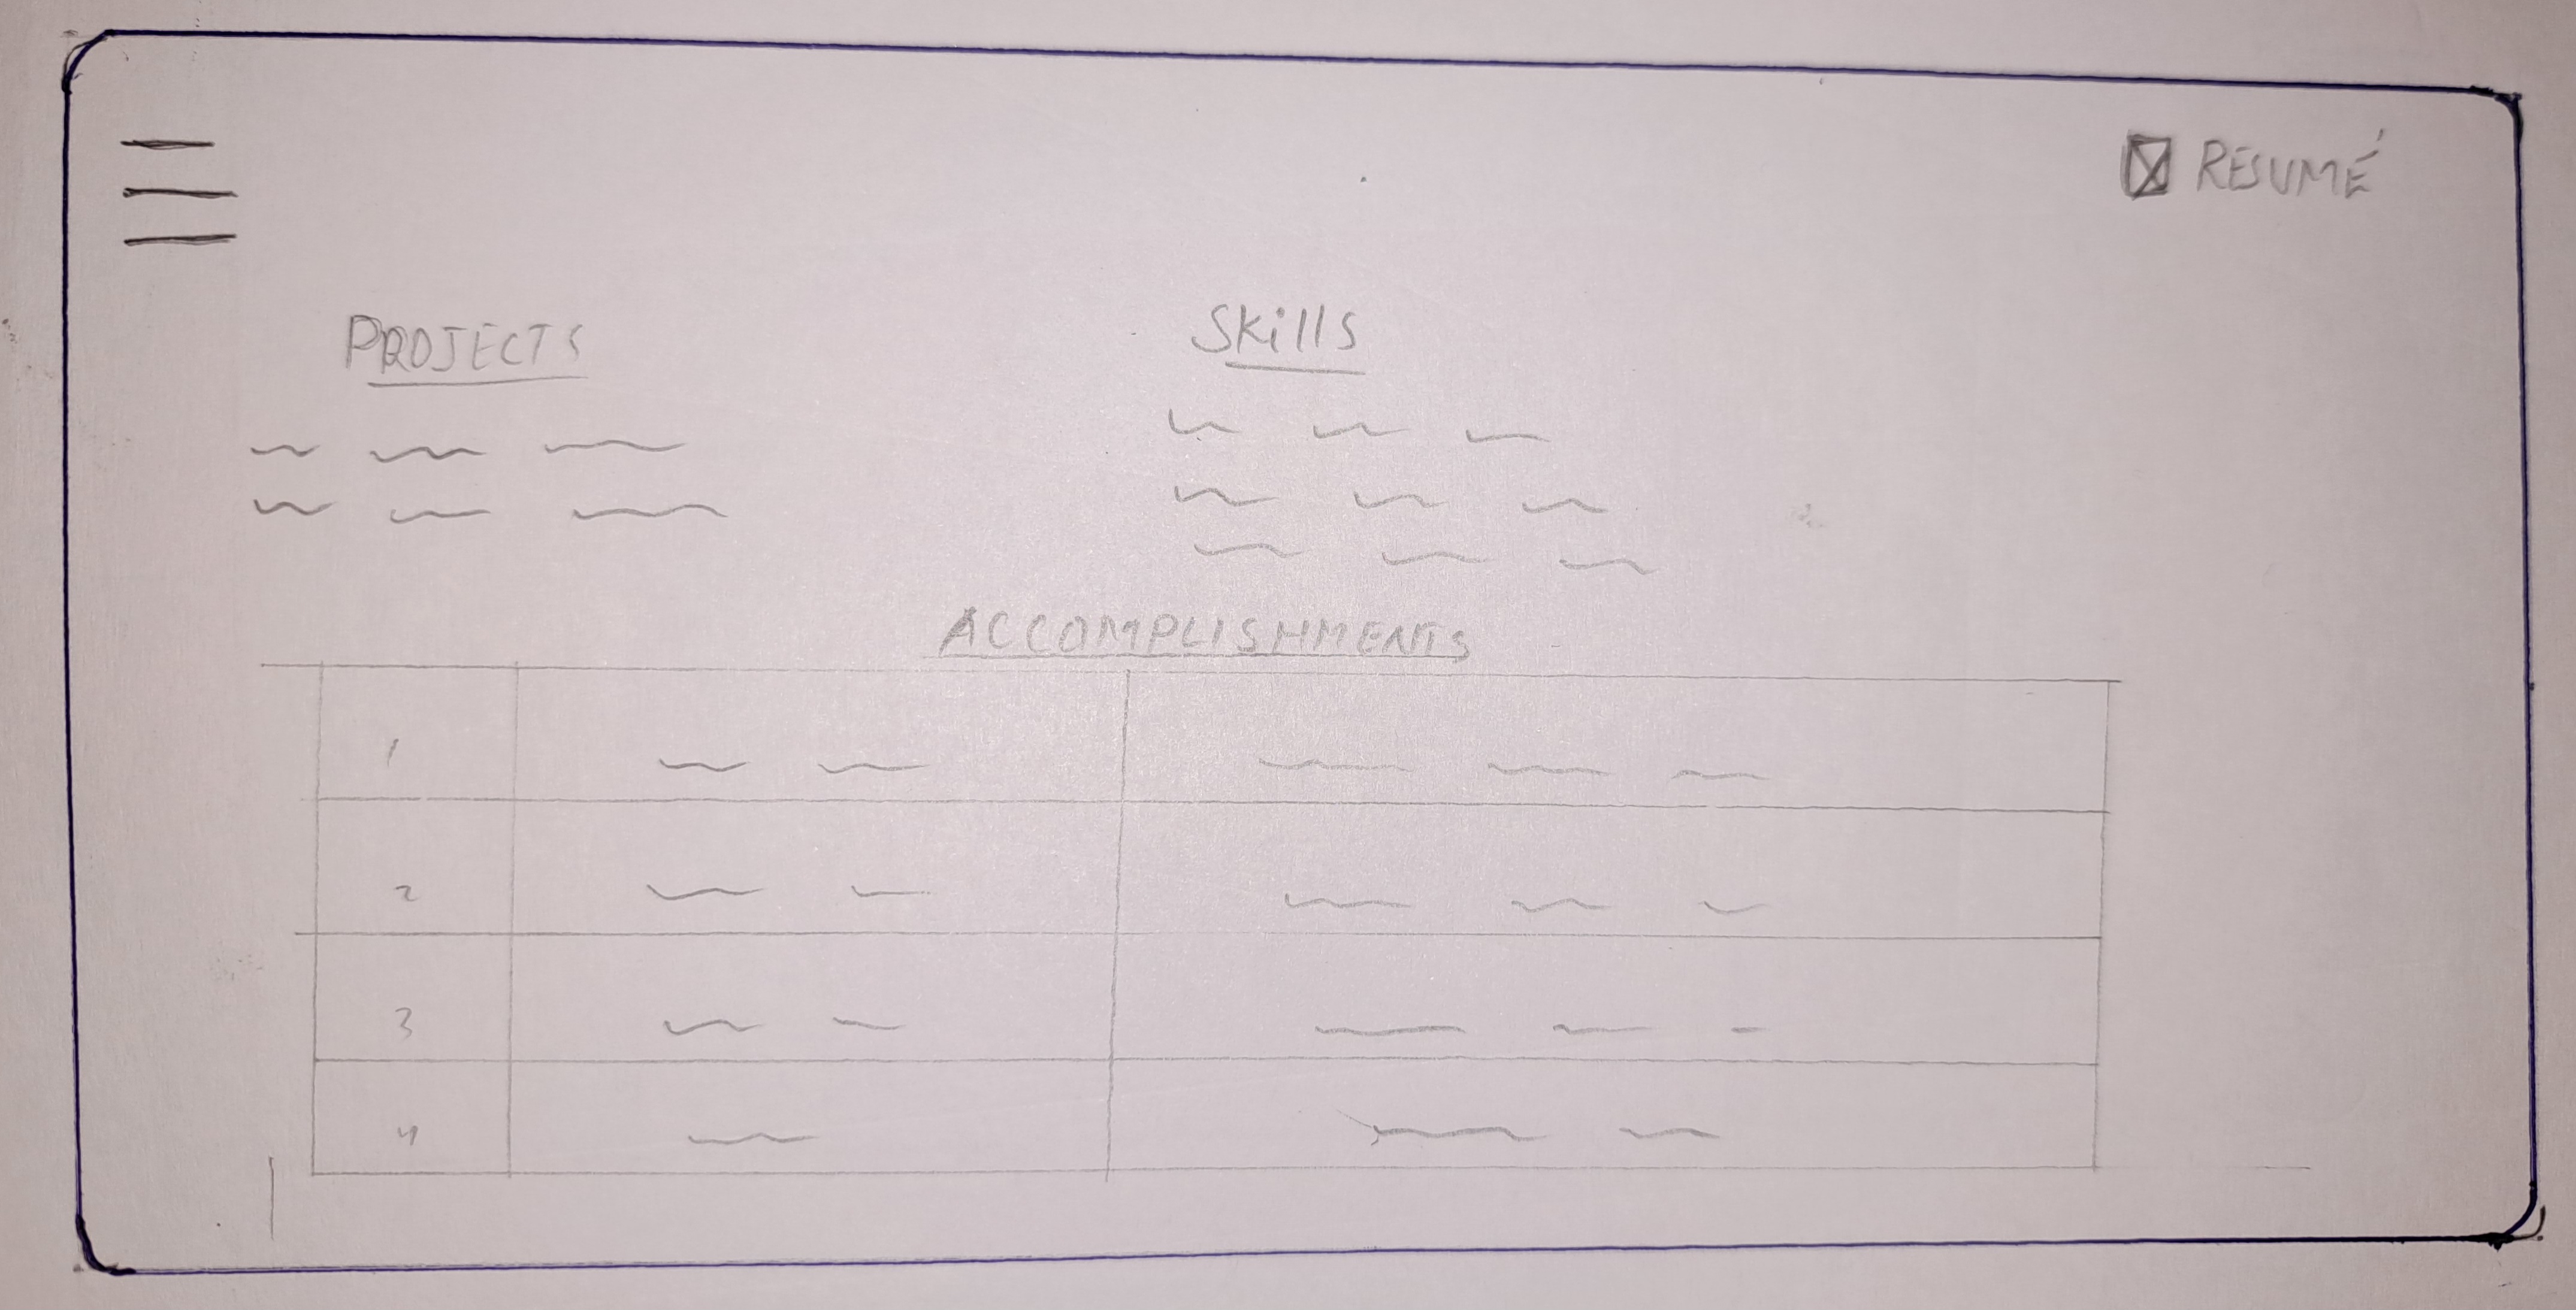 RESUMÉ
PROJECTS
Skills
ACCOMPLISHMENTS
1
2
3
4